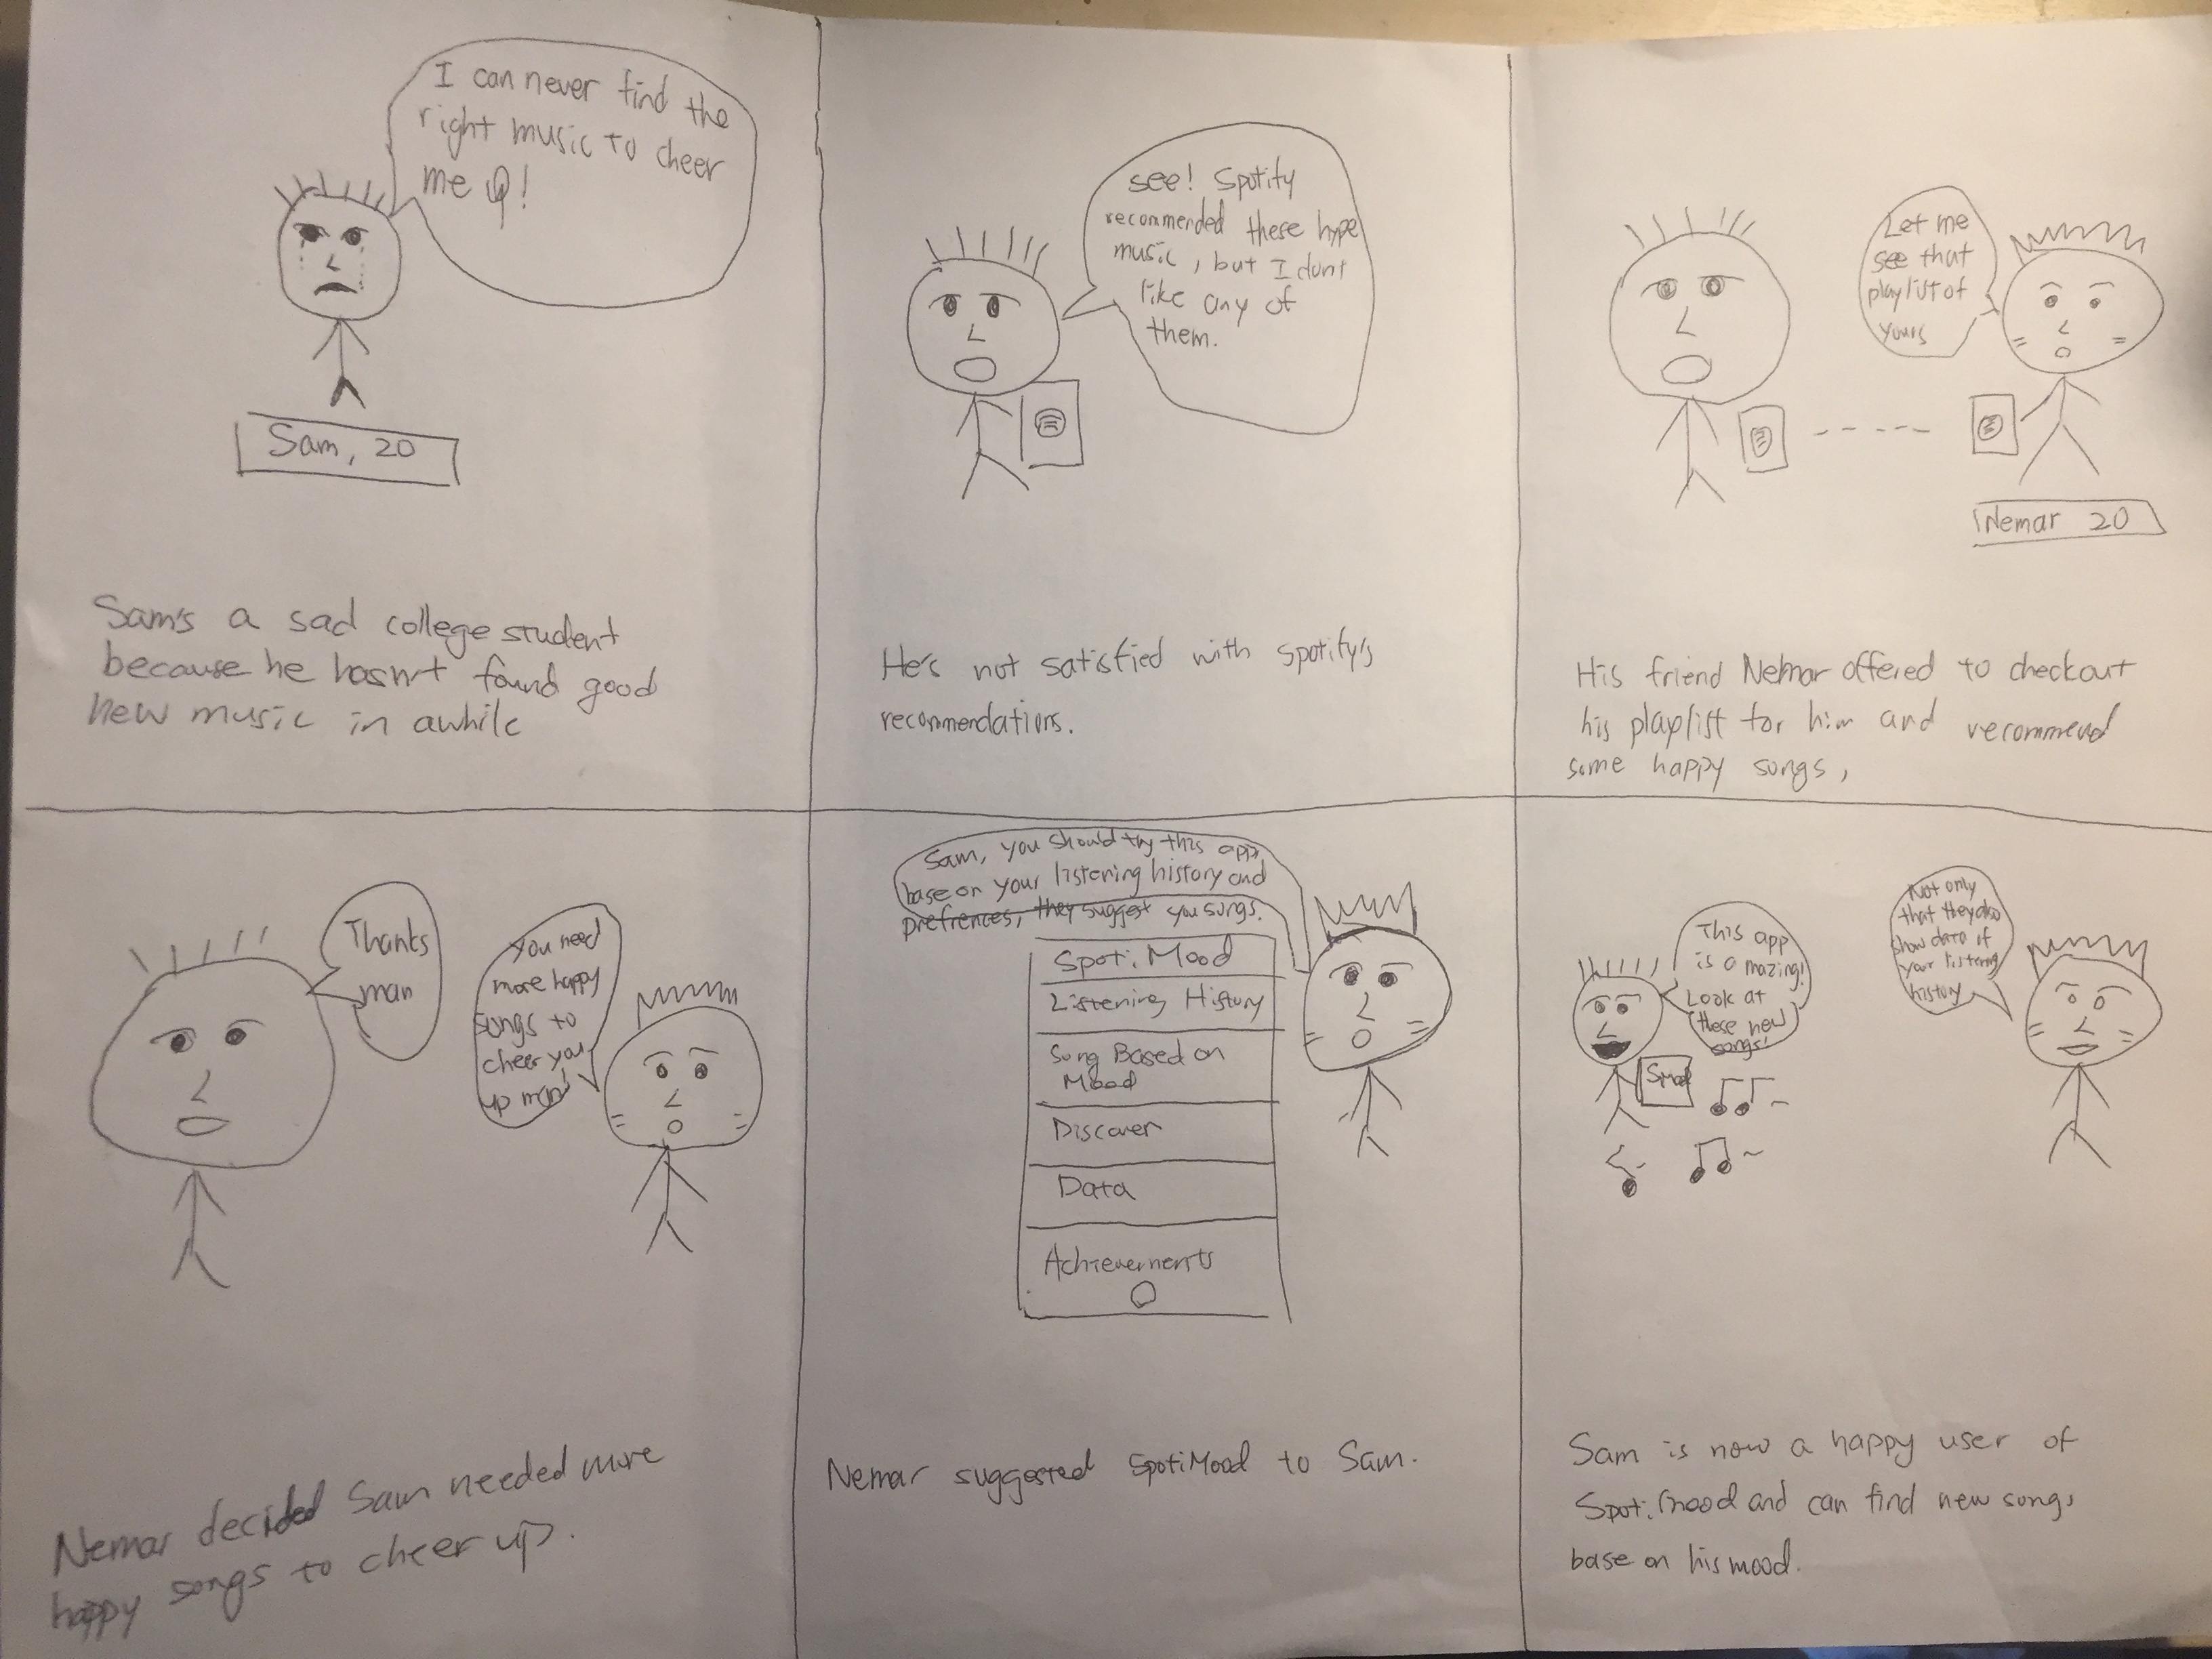 I can never find the
right music to cheer
me up!
Sam, 20
Sam's a sad college student
because he hasn't found good
new music in awhile
see! Spotify
recommended these hype
music, but I dont
like any of
them.
He's not satisfied with spotify's
recommendations.
Let me
see that
playlist of
yours
Nemar 20
His friend Nemar offered to checkout
his playlist for him and recommend
some happy songs,
Thanks
man
You need
more happy
songs to
cheer you
up man!
Nemar decided Sam needed more
happy songs to cheer up.
Sam, you should try this app,
base on your listening history and
prefrences, they suggest you songs.
Spoti.Mood
Listening History
Song Based on
Mood
Discover
Data
Achievements
Nemar suggested SpotiMood to Sam.
This app
is amazing!
Look at
these new
songs!
SMood
Not only
that they also
show data of
your listening
history
Sam is now a happy user of
Spoti.mood and can find new songs
base on his mood.